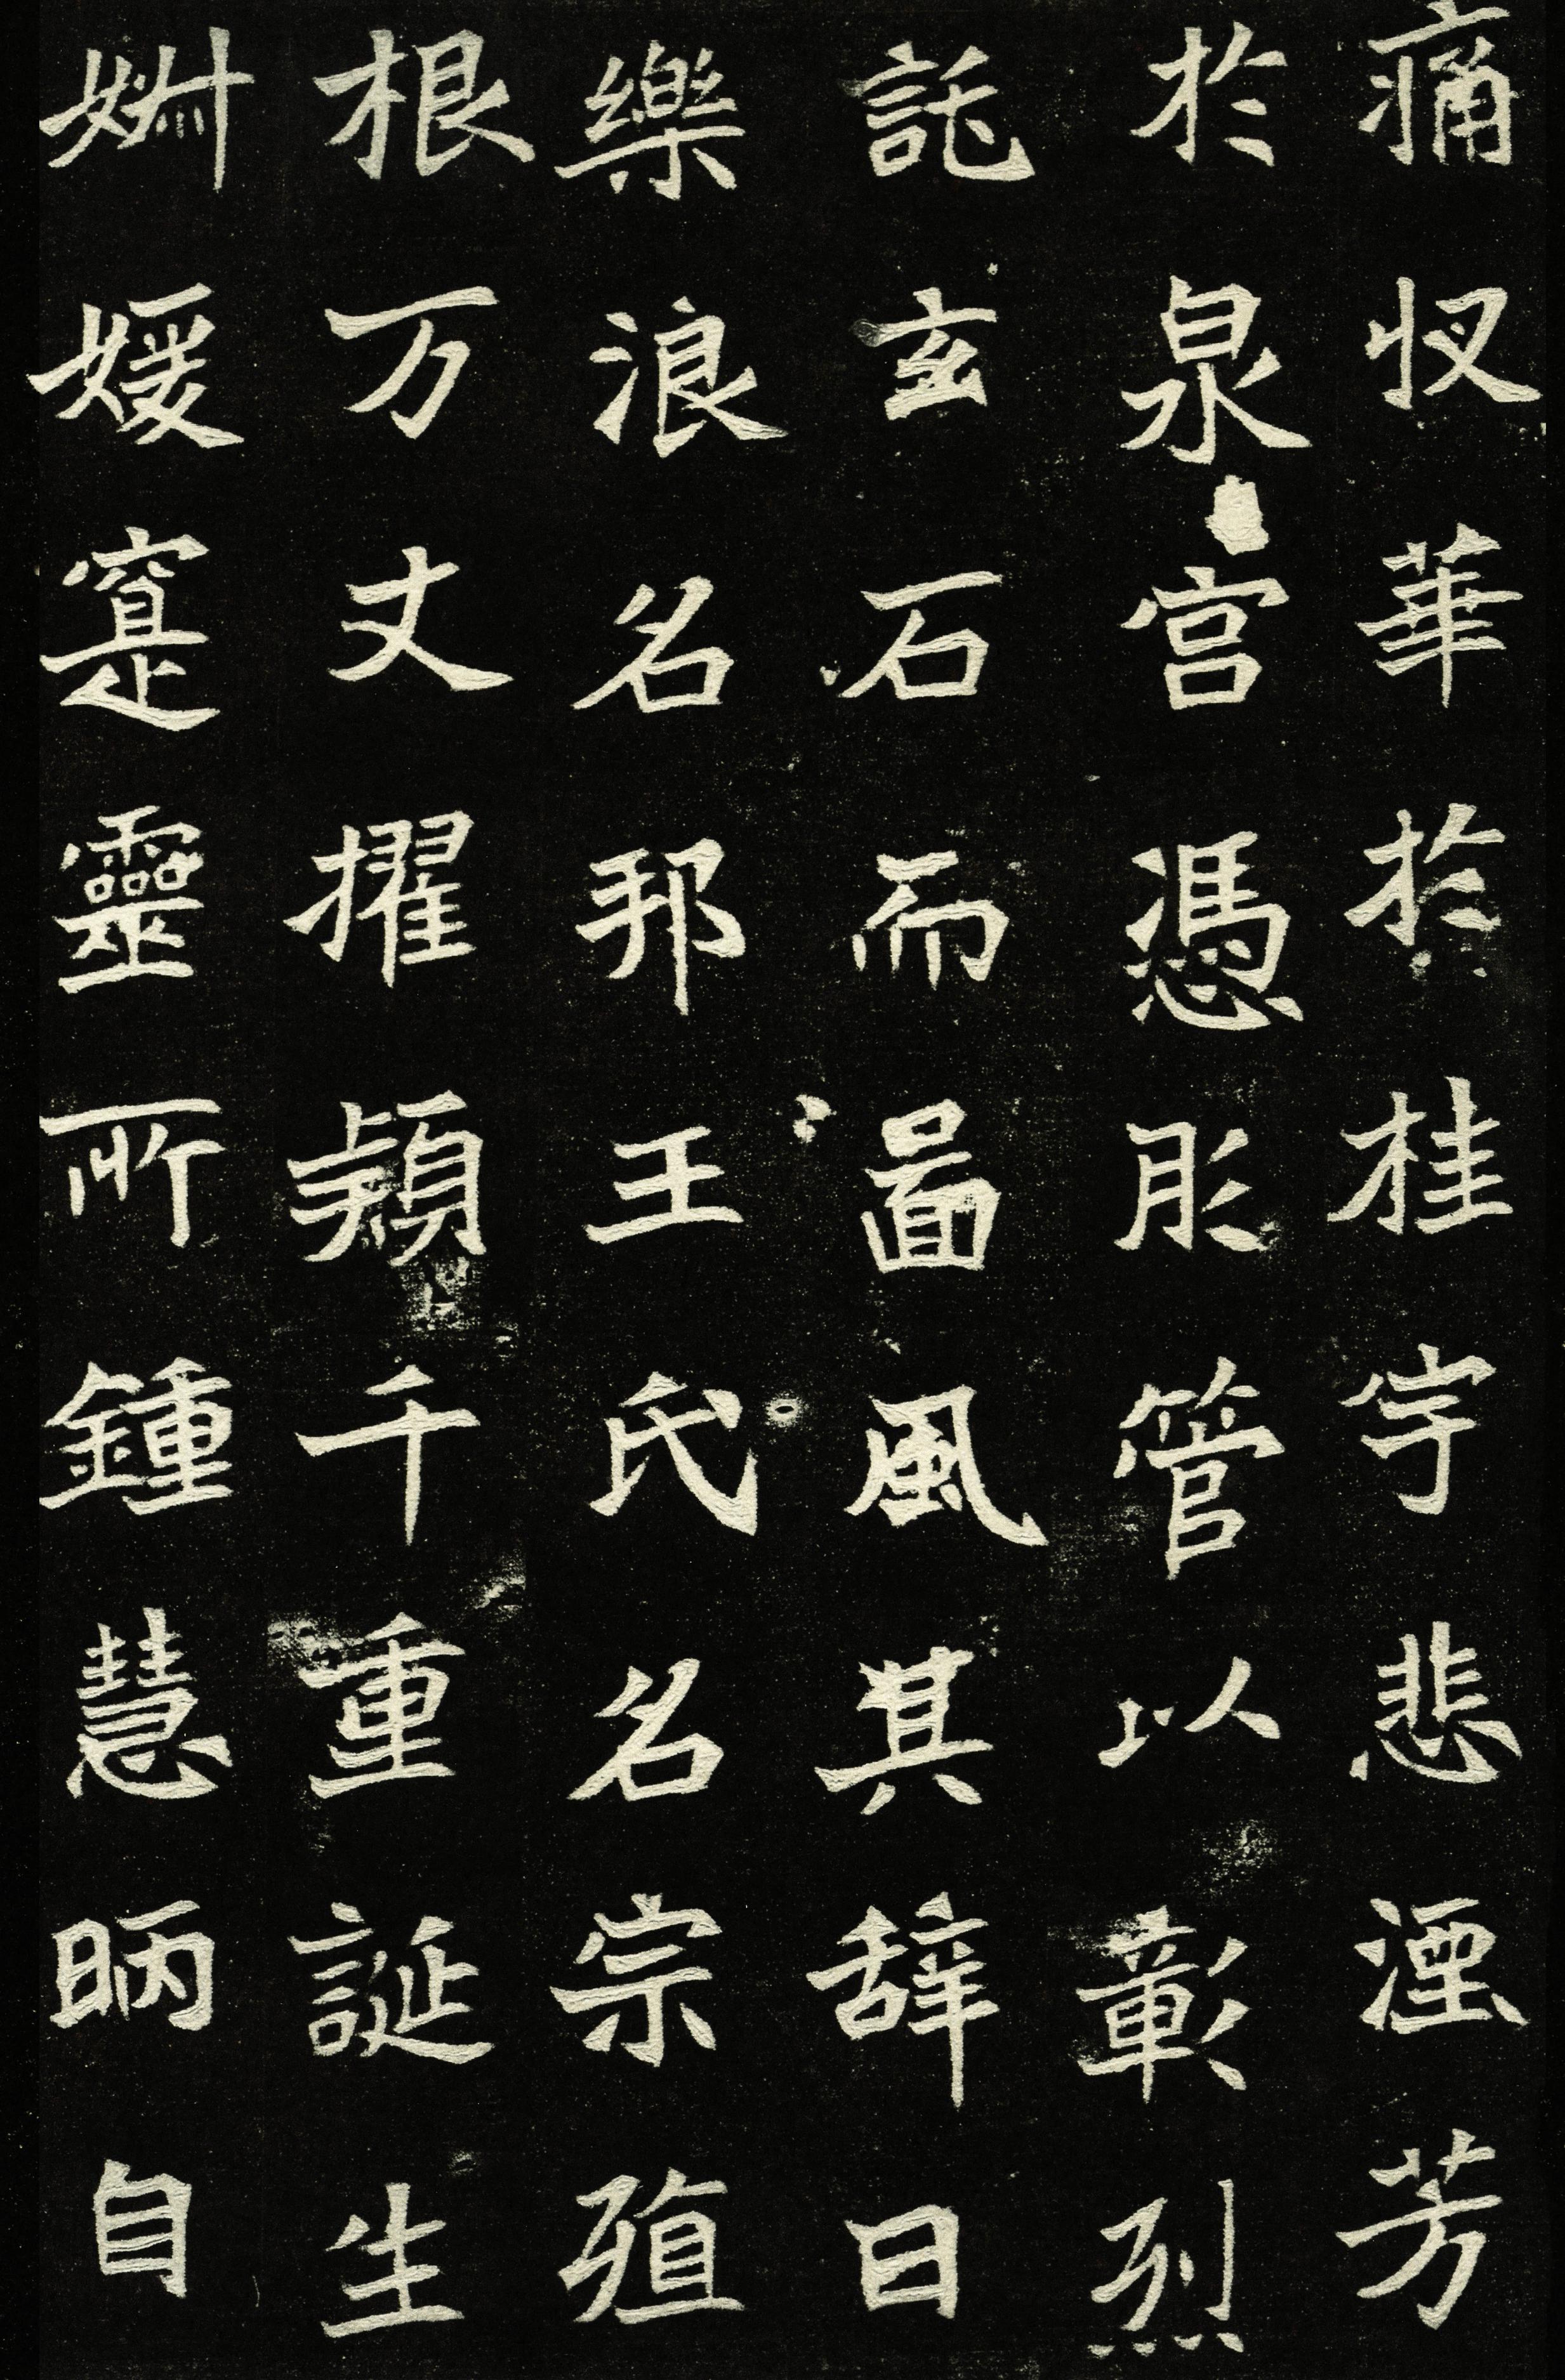 痛收華於桂宇悲湮芳
於泉宫憑肜管以彰烈
託玄石而啚風其辞曰
樂浪名邦王氏名宗殖
根万丈擢颖千重誕生
姍媛寔靈所鍾慧昞自